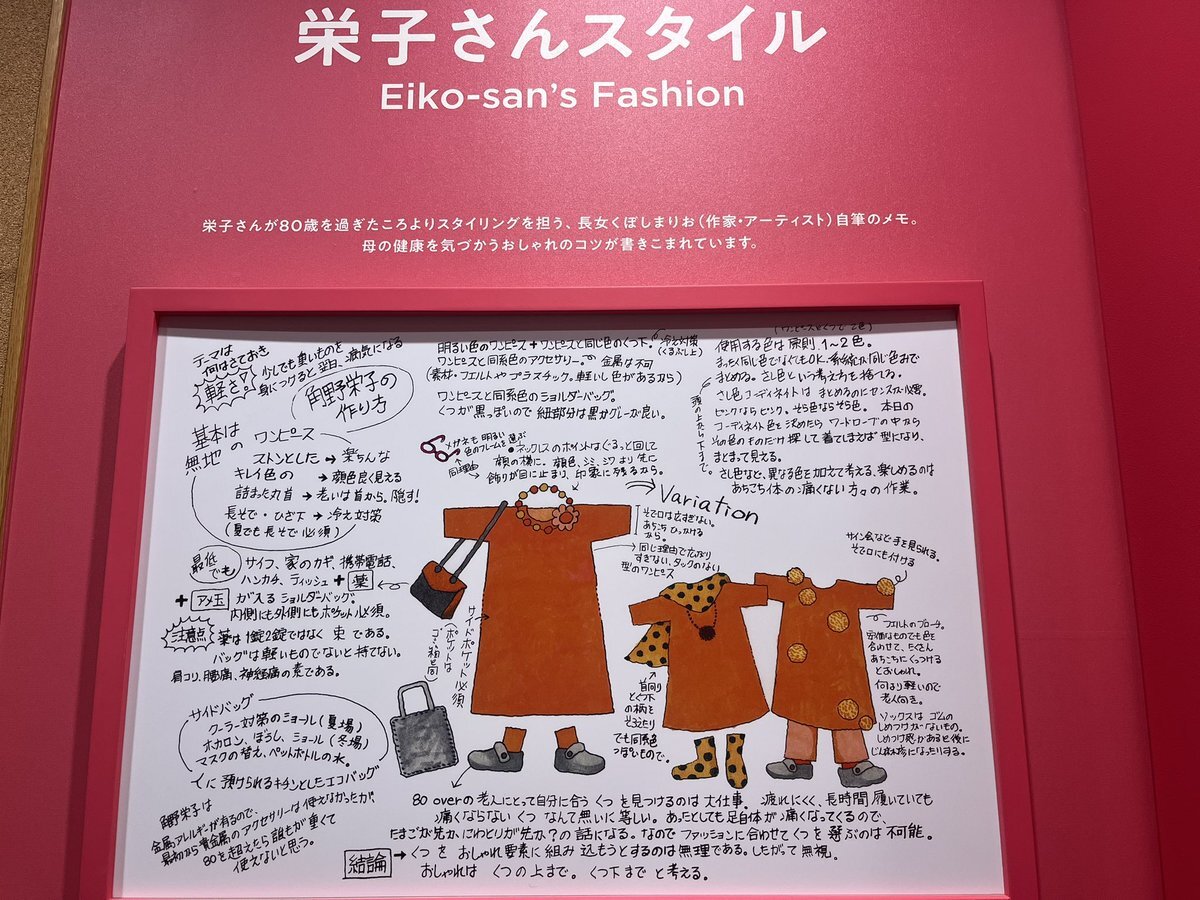 栄子さんスタイル
Eiko-san's Fashion
栄子さんが80歳を過ぎたころよりスタイリングを担う、長女くぼしまりお（作家・アーティスト）自筆のメモ。
母の健康を気づかうおしゃれのコツが書きこまれています。
テーマは
何はさておき
軽さ！
少しでも重いものを
身につけると翌日、病気になる
角野栄子の
作り方
基本は
無地の
ワンピース
ストンとした→楽ちんな
キレイ色の→顔色良く見える
詰まった丸首→老いは首から。隠す！
長そで・ひざ下→冷え対策
（夏でも長そで必須）
最低
でも
サイフ、家のカギ、携帯電話、
ハンカチ、ティッシュ＋薬
＋アメ玉が入るショルダーバッグ。
内側にも外側にもポケット必須。
注意点
薬は1錠2錠ではなく束である。
バッグは軽いものでないと持てない。
肩コリ、腰痛、神経痛の素である。
サイドバッグ
クーラー対策のショール（夏場）
ホカロン、ぼうし、ショール（冬場）
マスクの替え、ペットボトルの水。
人に預けられるキチンとしたエコバッグ
角野栄子は
金属アレルギーが有るので、
最初から貴金属のアクセサリーは使えなかったが、
80を超えたら誰もが重くて
使えないと思う。
明るい色のワンピース＋ワンピースと同じ色のくつ下。
冷え対策
（くるぶし上）
ワンピースと同系色のアクセサリー。金属は不可
（素材・フエルトやプラスチック。軽いし色があるから）
ワンピースと同系色のショルダーバッグ。
くつが黒っぽいので紐部分は黒かグレーが良い。
メガネも明るい
色のフレームを選ぶ
同じ理由
・ネックレスのポイントはぐるっと回して
顔の横に。顔色、シミ、シワより先に
飾りが目に止まり、印象に残るから。
使用する色は原則、1〜2色。
まったく同じ色でなくてもOK。系統が同じ色みで
まとめる。さし色という考え方を捨てる。
さし色コーディネイトはまとめるのにセンスが必要。
ピンクならピンク。そら色ならそら色。本日の
コーディネイト色を決めたらワードローブの中から
その色のものだけ探して着てしまえば型になり、
まとまって見える。
さし色など、異なる色を加えて考える、楽しめるのは
あちこち体の痛くない方々の作業。
頭の上から下まで。
Variation
そで口は広すぎない。
あちこちひっかける
から。
同じ理由で広がり
すぎない、タックのない
型のワンピース
サイドポケット必須
（ポケットは
ゴミ箱と同
サイン会など手を見られる。
そで口にも付ける
フエルトのブローチ。
安価なものでも色を
合わせて、たくさん
あちこちにくっつける
とおしゃれ。
何より軽いので
老人向き。
ソックスはゴムの
しめつけがないもの。
しめつけ感があると後に
じんましんになったりする。
首回り
とくつ下
の柄を
そろえたり
でも同系色
っぽいもので。
80 overの老人にとって自分に合うくつを見つけるのは大仕事。疲れにくく、長時間履いていても
痛くならないくつなんて無いに等しい。あったとしても足自体が痛くなってくるので、
たまごが先か、にわとりが先か？の話になる。なのでファッションに合わせてくつを選ぶのは不可能。
結論→くつをおしゃれ要素に組み込もうとするのは無理である。したがって無視。
おしゃれはくつの上まで。くつ下までと考える。